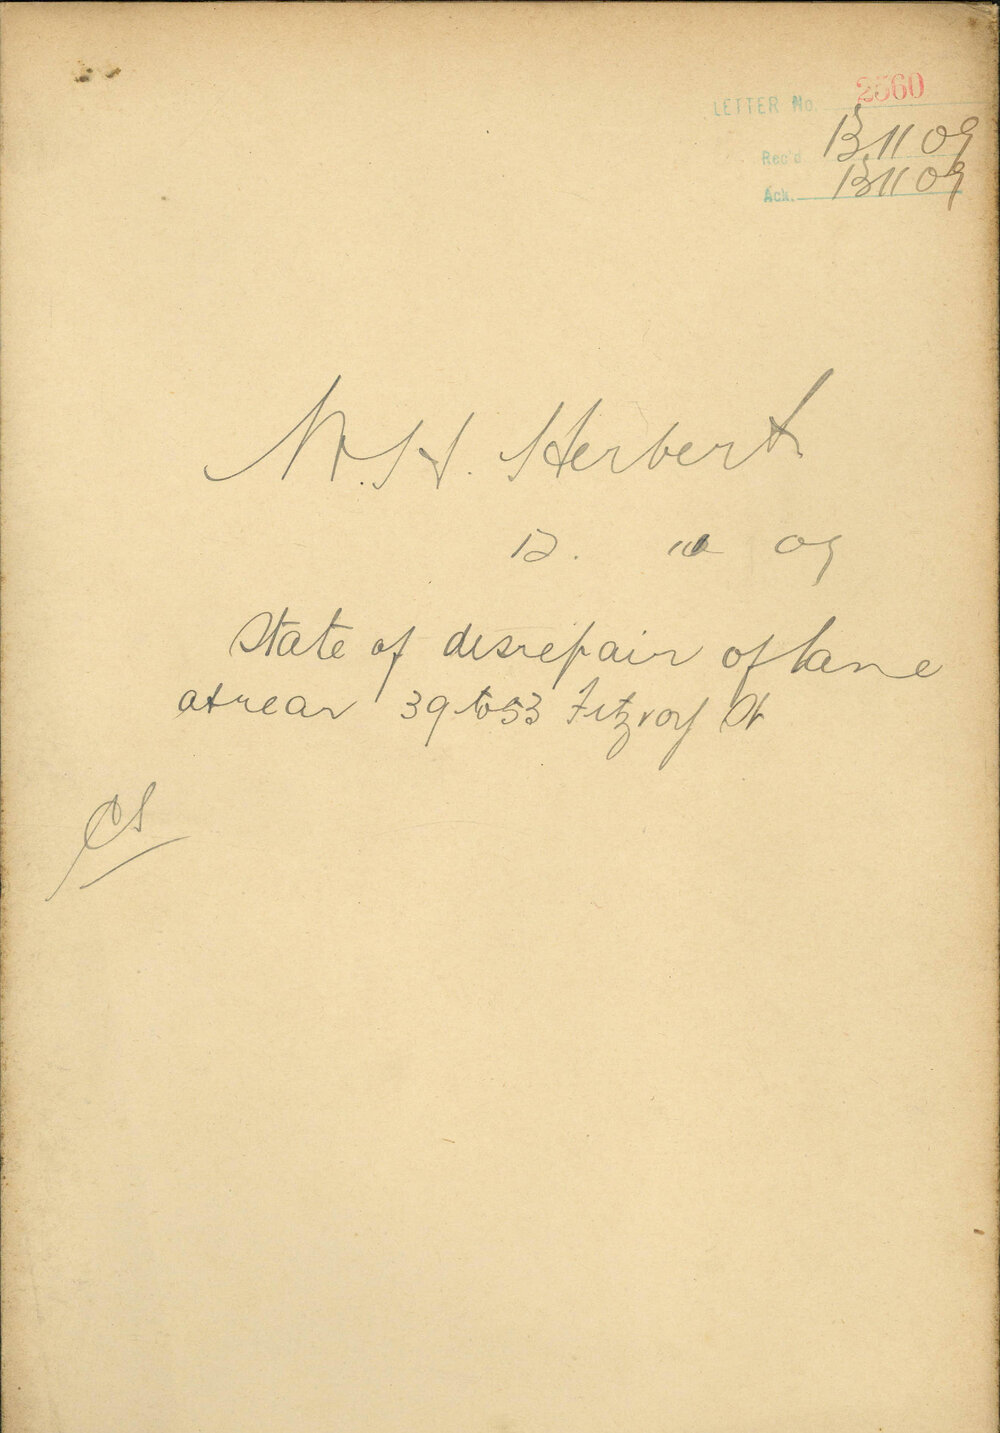 LETTER No. 2560
Rec'd 13 11 09
Ack. 13 11 09
N. H. Herbert
12. 09
State of disrepair of lane
at rear 39 to 53 Fitzroy St
CS